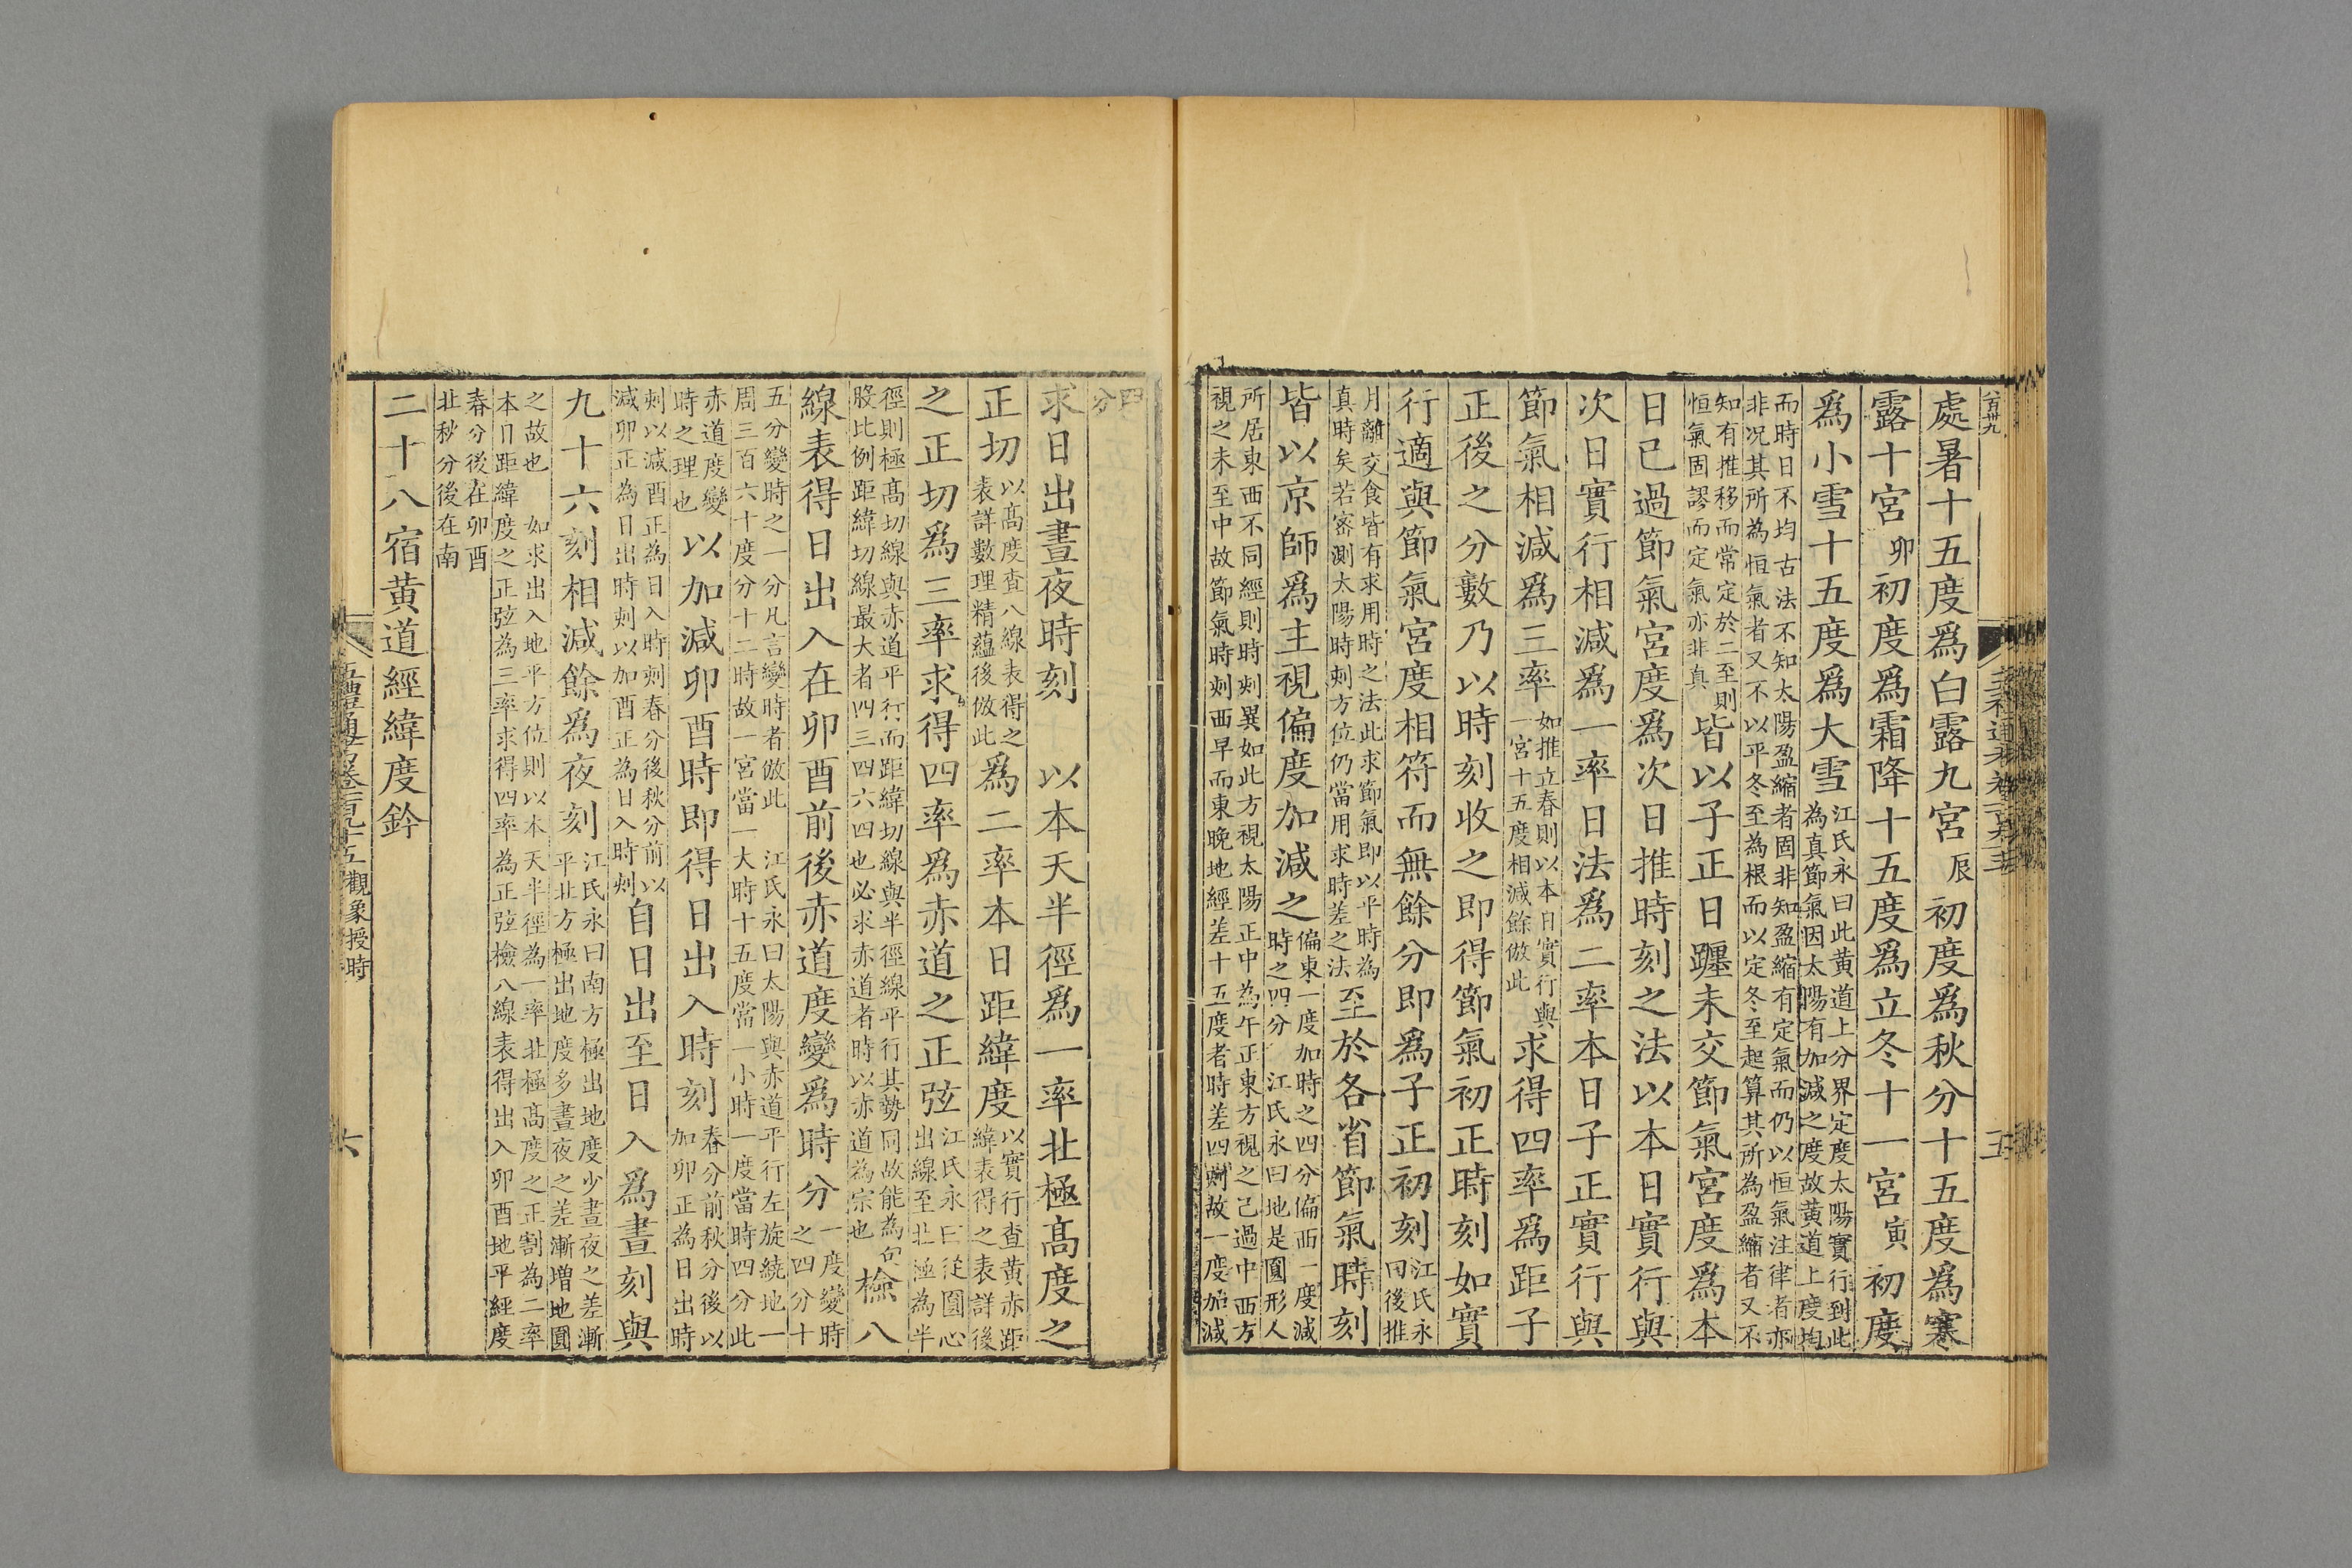 處暑十五度爲白露九宮辰初度爲秋分十五度爲寒
露十宮卯初度爲霜降十五度爲立冬十一宮寅初度
爲小雪十五度爲大雪江氏永曰此黄道上分界定度太陽實行到此
為真節氣因太陽有加減之度故黄道上度均
而時日不均古法不知太陽盈縮者固非知盈縮有定氣而仍以恒氣注律者亦
非况其所為恒氣者又不以平冬至為根而以定冬至起算其所為盈縮者又不
知有推移而常定於二至則
恒氣固謬而定氣亦非真皆以子正日躔未交節氣宮度爲本
日已過節氣宮度爲次日推時刻之法以本日實行與
次日實行相減爲一率日法爲二率本日子正實行與
節氣相減爲三率如推立春則以本日實行與
一宮十五度相減餘倣此求得四率爲距子
正後之分數乃以時刻收之即得節氣初正時刻如實
行適與節氣宮度相符而無餘分即爲子正初刻江氏永
曰後推
月離交食皆有求用時之法此求節氣即以平時為
真時矣若密測太陽時刻方位仍當用求時差之法至於各省節氣時刻
皆以京師爲主視偏度加減之偏東一度加時之四分偏西一度減
時之四分　江氏永曰地是圓形人
所居東西不同經則時刻異如此方視太陽正中為午正東方視之已過中西方
視之未至中故節氣時刻西早而東晚地經差十五度者時差四刻故一度加減
四
分
求日出晝夜時刻　以本天半徑爲一率北極髙度之
正切以髙度查八線表得之
表詳數理精蘊後倣此爲二率本日距緯度以實行查黄赤距
緯表得之表詳後
之正切爲三率求得四率爲赤道之正弦江氏永曰從圓心
出線至北極為半
徑則極髙切線與赤道平行而距緯切線與半徑線平行其勢同故能為句
股比例距緯切線最大者四三四六四也必求赤道者時以赤道為宗也檢八
線表得日出入在卯酉前後赤道度變爲時分一度變時
之四分十
五分變時之一分凡言變時者倣此　江氏永曰太陽與赤道平行左旋繞地一
周三百六十度分十二時故一宮當一大時十五度當一小時一度當時四分此
赤道度變
時之理也以加減卯酉時即得日出入時刻春分前秋分後以
加卯正為日出時
刻以減酉正為日入時刻春分後秋分前以
減卯正為日出時刻以加酉正為日入時刻自日出至日入爲晝刻與
九十六刻相減餘爲夜刻江氏永曰南方極出地度少晝夜之差漸
平北方極出地度多晝夜之差漸增地圓
之故也　如求出入地平方位則以本天半徑為一率北極髙度之正割為二率
本日距緯度之正弦為三率求得四率為正弦檢八線表得出入卯酉地平經度
春分後在卯酉
北秋分後在南
二十八宿黄道經緯度鈐
觀象授時
六